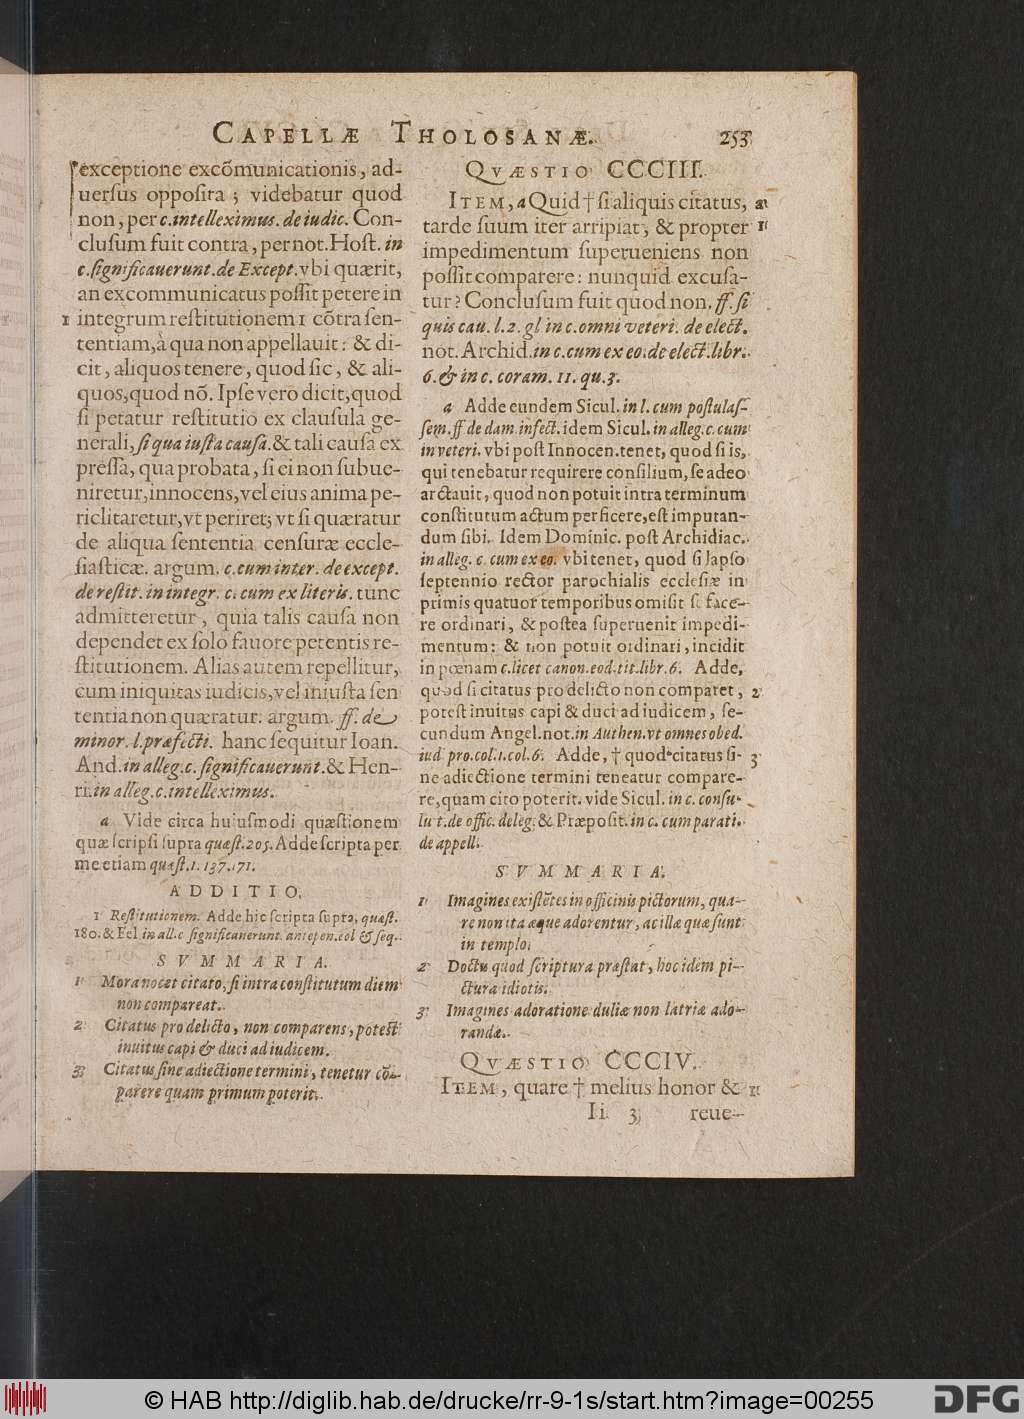 CAPELLÆ THOLOSANÆ. 253
exceptione excõmunicationis, ad-
uersus opposita; videbatur quod
non, per c.intelleximus. de iudic. Con-
clusum fuit contra, per not. Host. in
c.significauerunt.de Except. vbi quærit,
an excommunicatus possit petere in
1 integrum restitutionem 1 cõtra sen-
tentiam, à qua non appellauit: & di-
cit, aliquos tenere, quod sic, & ali-
quos, quod nõ. Ipse vero dicit, quod
si petatur restitutio ex clausula ge-
nerali, si qua iusta causa. & tali causa ex
pressa, qua probata, si ei non subue-
niretur, innocens, vel eius anima pe-
riclitaretur, vt periret; vt si quæratur
de aliqua sententia censuræ eccle-
siasticæ. argum. c.cum inter. de except.
de restit. in integr. c. cum ex literis. tunc
admitteretur, quia talis causa non
dependet ex solo fauore petentis re-
stitutionem. Alias autem repellitur,
cum iniquitas iudicis, vel iniusta sen
tentia non quæratur. argum. ff. de
minor. l. præfecti. hanc sequitur Ioan.
And. in alleg.c. significauerunt. & Hen-
ri. in alleg.c.intelleximus.
a Vide circa huiusmodi quæstionem
quæ scripsi supra quæst. 205. Adde scripta per
me etiam quæst. 1. 137. 171.
ADDITIO.
1 Restitutionem. Adde hic scripta supra, quæst.
180. & Fel in all.c significauerunt. antepen. col & seq.
SVMMARIA.
1 Mora nocet citato, si intra constitutum diem
non compareat.
2 Citatus pro delicto, non comparens, potest
inuitus capi & duci ad iudicem.
3 Citatus sine adiectione termini, tenetur cõ-
parere quam primum poterit.
QVÆSTIO CCCIII.
ITEM, a Quid † si aliquis citatus, a
tarde suum iter arripiat, & propter 1
impedimentum superueniens non
possit comparere: nunquid excusa-
tur? Conclusum fuit quod non. ff. si
quis cau. l. 2. gl in c. omni veteri. de elect.
not. Archid. in c. cum ex eo. de elect. libr.
6. & in c. coram. 11. qu. 3.
a Adde eundem Sicul. in l. cum postulas-
sem. ff de dam. infect. idem Sicul. in alleg. c. cum
inveteri. vbi post Innocen. tenet, quod si is,
qui tenebatur requirere consilium, se adeo
arctauit, quod non potuit intra terminum
constitutum actum perficere, est imputan-
dum sibi. Idem Dominic. post Archidiac.
in alleg. c. cum ex eo. vbi tenet, quod si lapso
septennio rector parochialis ecclesiæ in
primis quatuor temporibus omisit se face-
re ordinari, & postea superuenit impedi-
mentum: & non potuit ordinari, incidit
in pœnam c. licet canon. eod. tit. libr. 6. Adde,
quod si citatus pro delicto non comparet, 2
potest inuitus capi & duci ad iudicem, se-
cundum Angel. not. in Authen. vt omnes obed.
iud pro. col. 1. col. 6. Adde, † quod citatus si- 3
ne adiectione termini teneatur compare-
re, quam cito poterit. vide Sicul. in c. consu-
lu t. de offic. deleg. & Præposit. in c. cum parati.
de appell.
SVMMARIA.
1 Imagines existẽtes in officinis pictorum, qua-
re non ita æque adorentur, ac illæ quæ sunt
in templo.
2 Doctis quod scriptura præstat, hoc idem pi-
ctura idiotis.
3 Imagines adoratione duliæ non latriæ ado-
randæ.
QVÆSTIO CCCIV.
ITEM, quare † melius honor & 1
Ii 3 reue-
© HAB http://diglib.hab.de/drucke/rr-9-1s/start.htm?image=00255
DFG